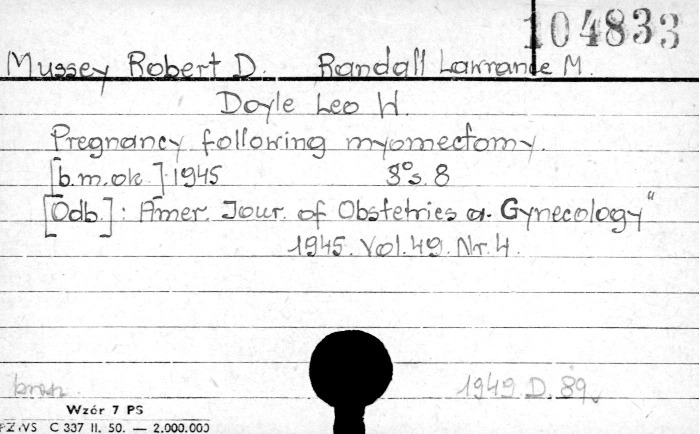 104833
Mussey Robert D. Randall Lawrance M.
Doyle Leo W.
Pregnancy following myomectomy.
[b.m.ok.] 1945 8° s. 8
[Odb.]: Amer. Jour. of Obstetries a. Gynecology"
1945. Vol. 49. Nr. 4.
brosz.
1949 D. 89.
Wzór 7 PS
PZWS C 337 II. 50. — 2.000.000